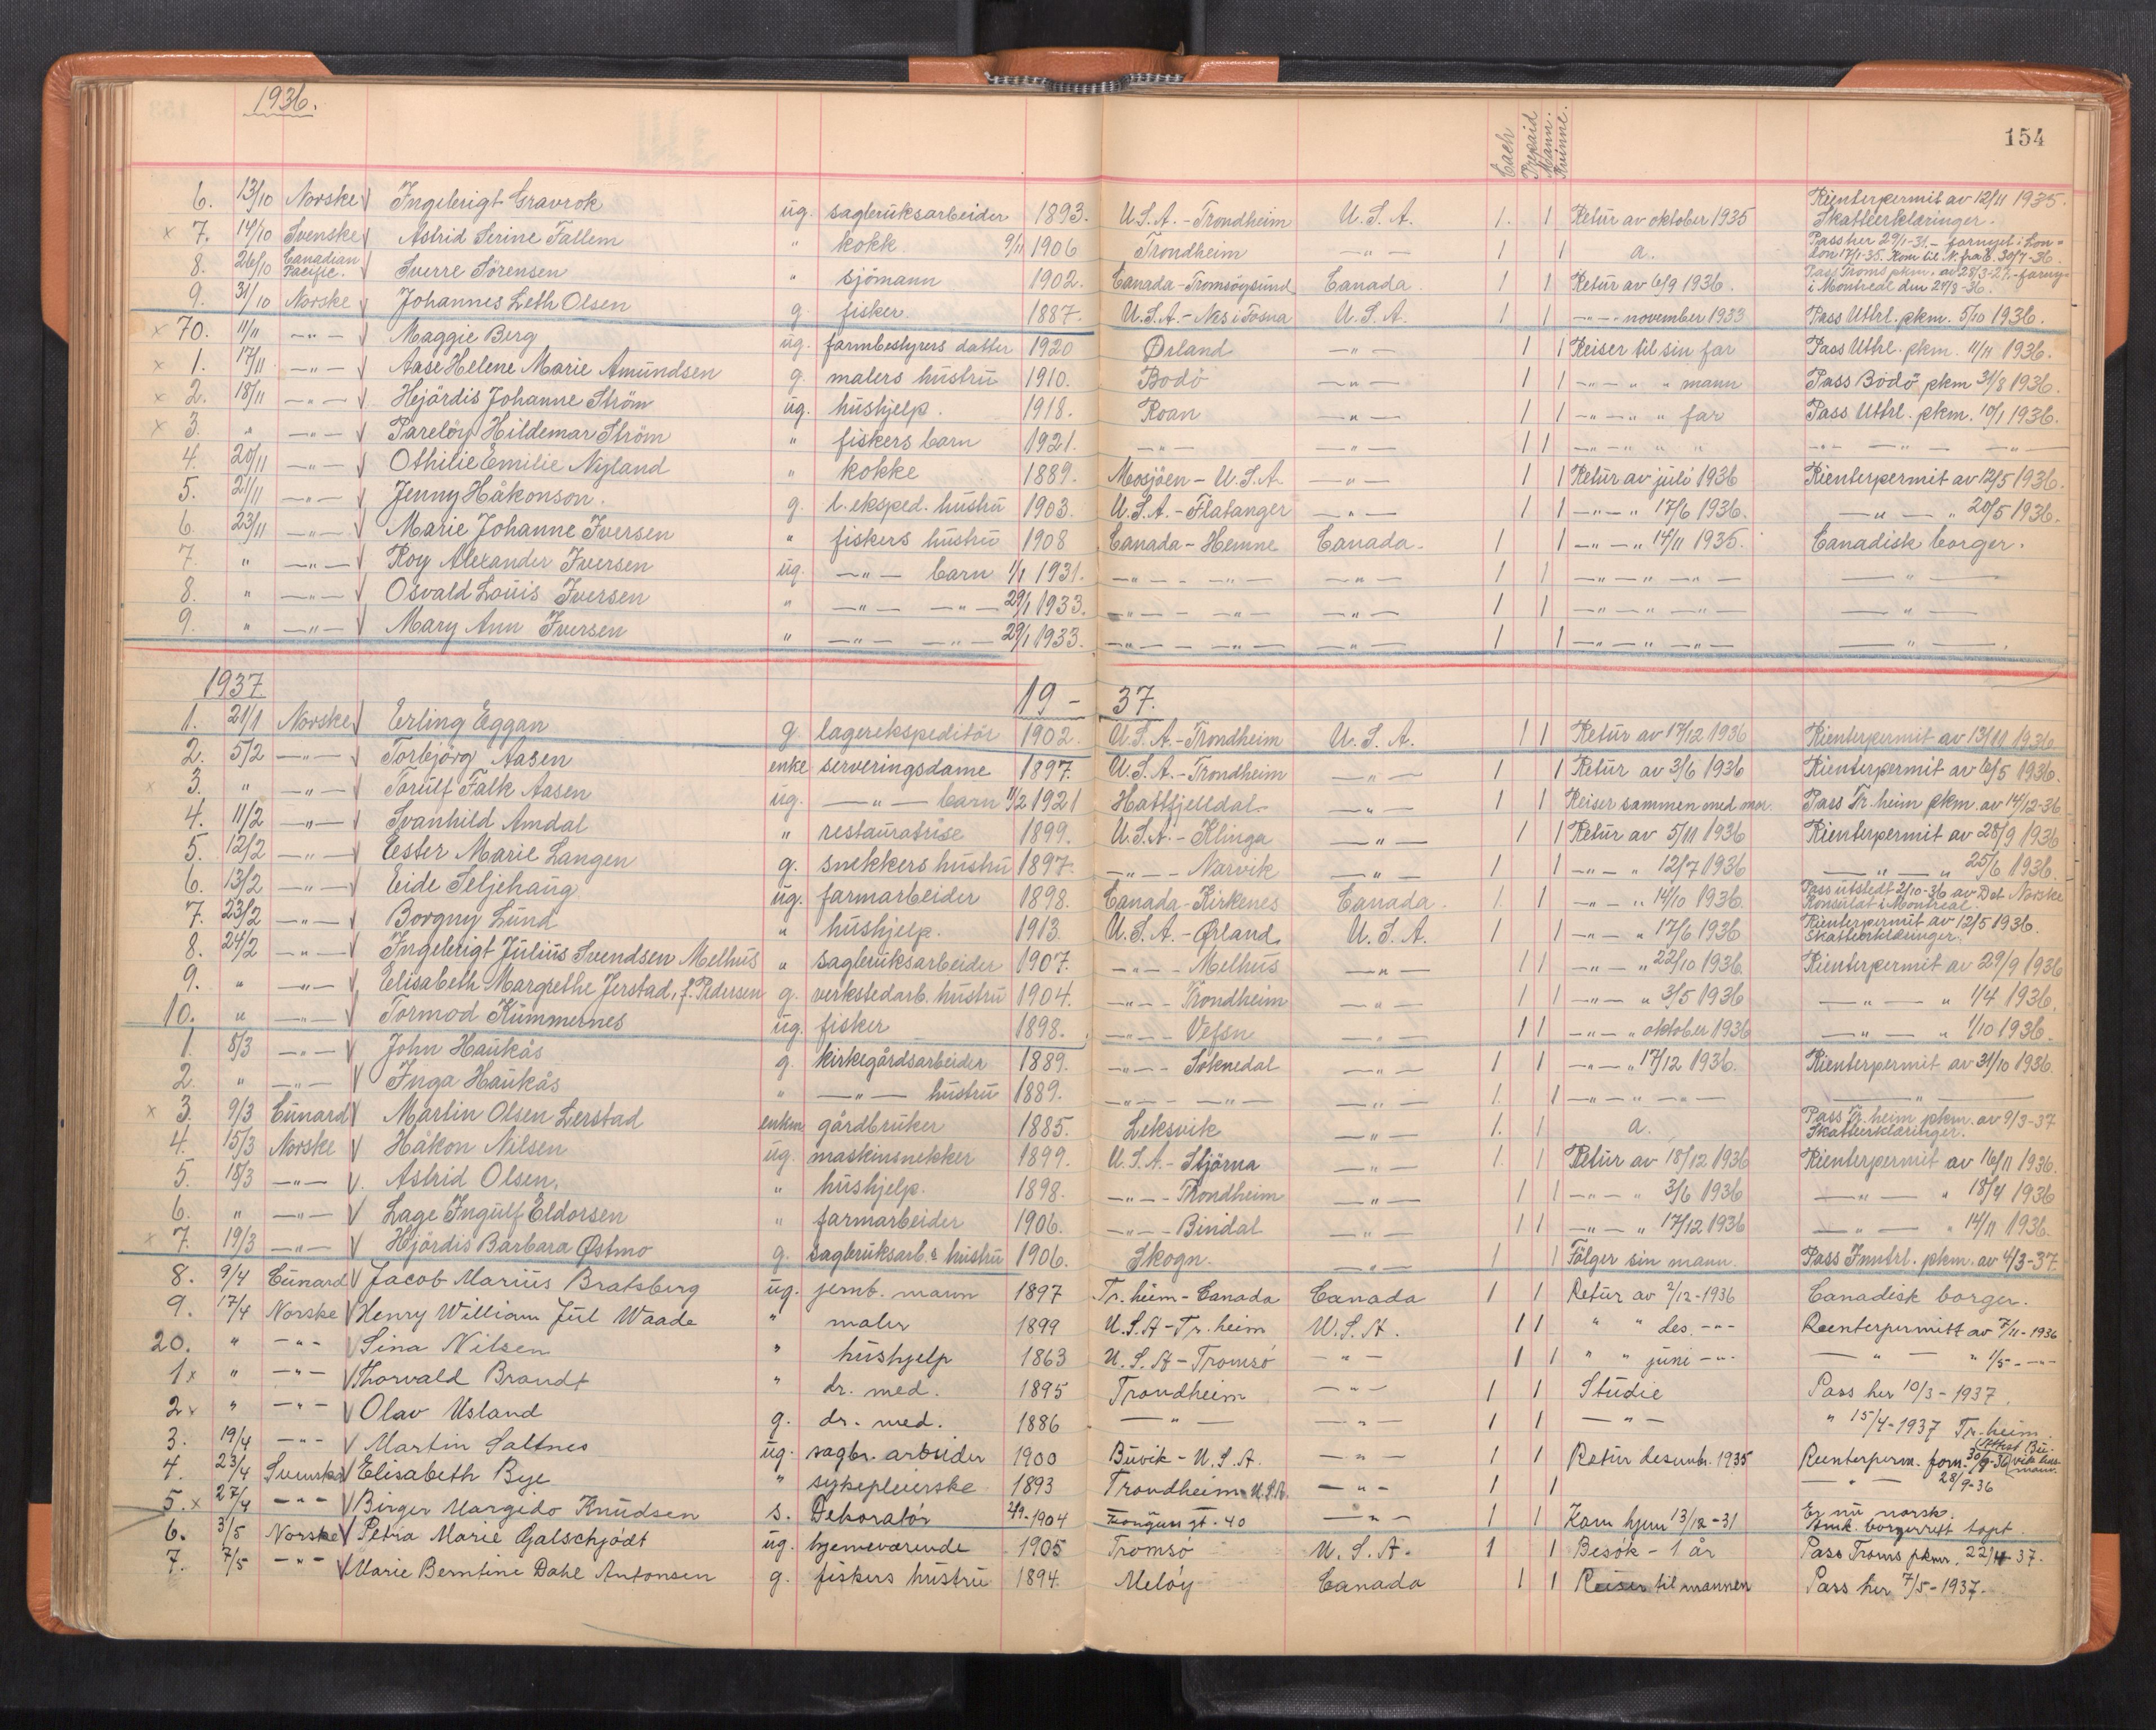 1936.
154
Cash Prepaid Mann. Kvinne.
6. 13/10 Norske √ Ingebrigt Gravrok ug. sagbruksarbeider 1893. U.S.A. - Trondheim U.S.A. 1. 1 Retur av oktober 1935 Rienterpermit av 12/11 1935. Skatteerklæringer.
x 7. 14/10 Svenske √ Astrid Serine Fallem " kokk 9/11 1906 Trondheim —"— 1 1 a. Pass her 29/1-31.- fornyet i Lon=don 17/1-35. Kom til N. fra E. 30/7-36.
8. 26/10 Canadian Pacific. √ Sverre Sörensen " sjömann 1902. Canada - Tromsöysund Canada. 1 1 Retur av 6/9 1936. Pass Troms pkm. av 28/3-27.- forny. i Montreal den 24/8-36.
9. 31/10 Norske √ Johannes Leth Olsen g. fisker. 1887. U.S.A. - Nes i Fosna U.S.A. 1 1 —"— november 1933 Pass Uttrl. pkm. 5/10 1936.
x 70. 11/11 —"— √ Maggie Berg ug. farmbestyrers datter 1920 Ørland —"— 1 1 Reiser til sin far Pass Uttrl. pkm. 11/11 1936.
x 1. 17/11 —"— √ Aase Helene Marie Amundsen g. malers hustru 1910. Bodö —"— 1 1 —"— " " mann Pass Bodö pkm 31/8 1936.
x 2. 18/11 —"— √ Hejördis Johanne Ström ug. hushjelp. 1918. Roan —"— 1 1 —"— " " far Pass Uttrl. pkm. 10/1 1936.
x 3. " —"— √ Pareløy Hildemar Ström " fiskers barn 1921. —"— —"— 1 1 —"— " " " —"— —"— —"—
4. 20/11 —"— √ Othilie Emilie Nyland " kokke 1889. Mosjöen - U.S.A. —"— 1 1 Retur av juli 1936 Rienterpermit av 12/5 1936.
5. 21/11 —"— √ Jenny Håkonson. g. l. eksped. hustru 1903. U.S.A. - Flatanger —"— 1 1 —"— " 17/6 1936. —"— — " 20/5 1936.
6. 23/11 —"— √ Marie Johanne Iversen " fiskers hustru 1908 Canada - Hemne Canada. 1 1 —"— " 14/11 1935. Canadisk borger.
7. " —"— √ Roy Alexander Iversen ug. —"— barn 1/1 1931. —"— - —"— —"— 1 1 —"— " —"— —"—
8. " —"— √ Osvald Louis Iversen " —"— —"— 29/1 1933. —"— - —"— —"— 1 1 —"— " —"— —"—
9. " —"— √ Mary Ann Iversen " —"— —"— 29/1 1933. —"— - —"— —"— 1 1 —"— " —"— —"—
1937 19 - 37.
1. 21/1 Norske √ Erling Eggan g. lagerekspeditör 1902. U.S.A. - Trondheim U.S.A. 1 1 Retur av 17/12 1936 Rienterpermit av 13/11 1936
2. 5/2 —"— √ Torbjörg Aasen enke serveringsdame 1897. U.S.A. - Trondheim —"— 1 1 Retur av 3/6 1936 Rienterpermit av 6/5 1936.
x 3. " —"— √ Torulf Falk Aasen ug. —"— barn 11/2 1921 Hattfjelldal. —"— 1 1 Reiser sammen med mor. Pass Tr. heim pkm. av 14/12-36
4. 11/2 —"— √ Svanhild Amdal " restauratrise 1899. U.S.A. - Klinga —"— 1 1 Retur av 5/11 1936 Rienterpermit av 28/9 1936
5. 12/2 —"— √ Ester Marie Langen g. snekkers hustru 1897. —"— - Narvik —"— 1 1 —"— " 12/7 1936 —"— — " 25/6 1936.
6. 13/2 —"— √ Eide Seljehaug ug. farmarbeider 1898. Canada - Kirkenes Canada. 1. 1 —"— " 14/10 1936. Pass utstedt 2/10-36 av Det Norske Konsulat i Montreal.
7. 23/2 —"— √ Borgny Lund " hushjelp. 1913 U.S.A. - Ørland U.S.A. 1 1 —"— " 17/6 1936 Rienterpermit av 12/5 1936. Skatteerklæringer.
8. 24/2 —"— √ Ingebrigt Julius Svendsen Melhus " sagbruksarbeider 1907. —"— - Melhus —"— 1 1 —"— " 22/10 1936. Rienterpermit av 29/9 1936
9. " —"— √ Elisabeth Margrethe Jerstad, f. Pedersen g. verkstedarb. hustru 1904. —"— - Trondheim —"— 1 1 —"— " 3/5 1936 —"— — " 1/4 1936.
10. " —"— √ Tormod Kummernes ug. fisker 1898. —"— - Vefsn —"— 1 1 —"— " oktober 1936 —"— — " 1/10 1936.
1. 8/3 —"— √ John Haukås g. kirkegårdsarbeider 1889. —"— - Soknedal —"— 1 1 —"— " 17/12 1936. Rienterpermit av 31/10 1936.
2. " —"— √ Inga Haukås " —"— hustru 1889. —"— - —"— —"— 1. 1 —"— " —"— —"—
x 3. 9/3 Cunard √ Martin Olsen Lerstad enkm. gårdbruker 1885. Leksvik —"— 1. 1 a. Pass Tr. heim pkm. av 9/3-37 Skatteerklæringer.
4. 15/3 Norske √ Håkon Nilsen ug. maskinsnekker 1899. U.S.A. - Stjörna —"— 1. 1 Retur av 18/12 1936 Rienterpermit av 16/11 1936.
5. 18/3 —"— √. Astrid Olsen. " hushjelp. 1898. —"— - Trondheim —"— 1 1 —"— " 3/6 1936 —"— — " 18/4 1936
6. " —"— √ Lage Ingulf Eldorsen " farmarbeider 1906. —"— - Bindal —"— 1 1 —"— " 17/12 1936 —"— — " 14/11 1936.
x 7. 19/3 —"— √ Hjördis Barbara Østmo g. sagbruksarb.s hustru 1906. Skogn. —"— 1 1 Fölger sin mann. Pass Inntrl. pkm. av 4/3-37.
8. 9/4 Cunard √ Jacob Marius Bratsberg ug. jernb. mann 1897 Tr. heim - Canada Canada 1 1 Retur av 2/12-1936 Canadisk borger.
9. 17/4 Norske √ Henry William Jul Waade " maler 1899 U.S.A - Tr. heim U.S.A. 1 1 " " des. -"- Reenterpermitt av 7/11-1936
20. " -"- √ Sina Nilsen " hushjelp 1863 U.S.A - Tromsö -"- 1 1 " " juni -"- — " — " 1/5 - -"-
1 x " -"- √ Thorvald Brandt " dr. med. 1895 Trondheim -"- 1 1 Studie Pass her 10/3 - 1937.
2 x " -"- √ Olav Usland g. dr. med. 1886 — " — -"- 1 1 — " — " 15/4-1937 Tr. heim.
3. 19/4 -"- √ Martin Saltnes ug. sagbr. arbeider 1900 Buvik - U.S.A. -"- 1 1 Retur desembr. 1935 Reenterperm. forn. 30/9-36 (Attest Bu-vik lens-mann.
4. 23/4 Svenske √ Elisabeth Bye " sykepleierske 1893 Trondheim - U.S.A. -"- 1 1 — " — 28/9-36
5. x 27/4 -"- √ Birger Margido Knudsen s. Dekoratör 2/9-1904 Kongens gt. 40 -"- 1 1 Kom hjem 13/12-31 Er nu norsk. Amk. borgerrett tapt.
6. 3/5 Norske √ Petra Marie Galschjödt ug. hjemmeværende 1905 Tromsö U.S.A. 1 1 Besök - 1 år Pass Troms pkm. 22/4 37.
7. 7/5 -"- √ Marie Berntine Dahl Antonsen g. fiskers hustru 1894. Melöy Canada 1 1 Reiser til mannen Pass her 7/5-1937.